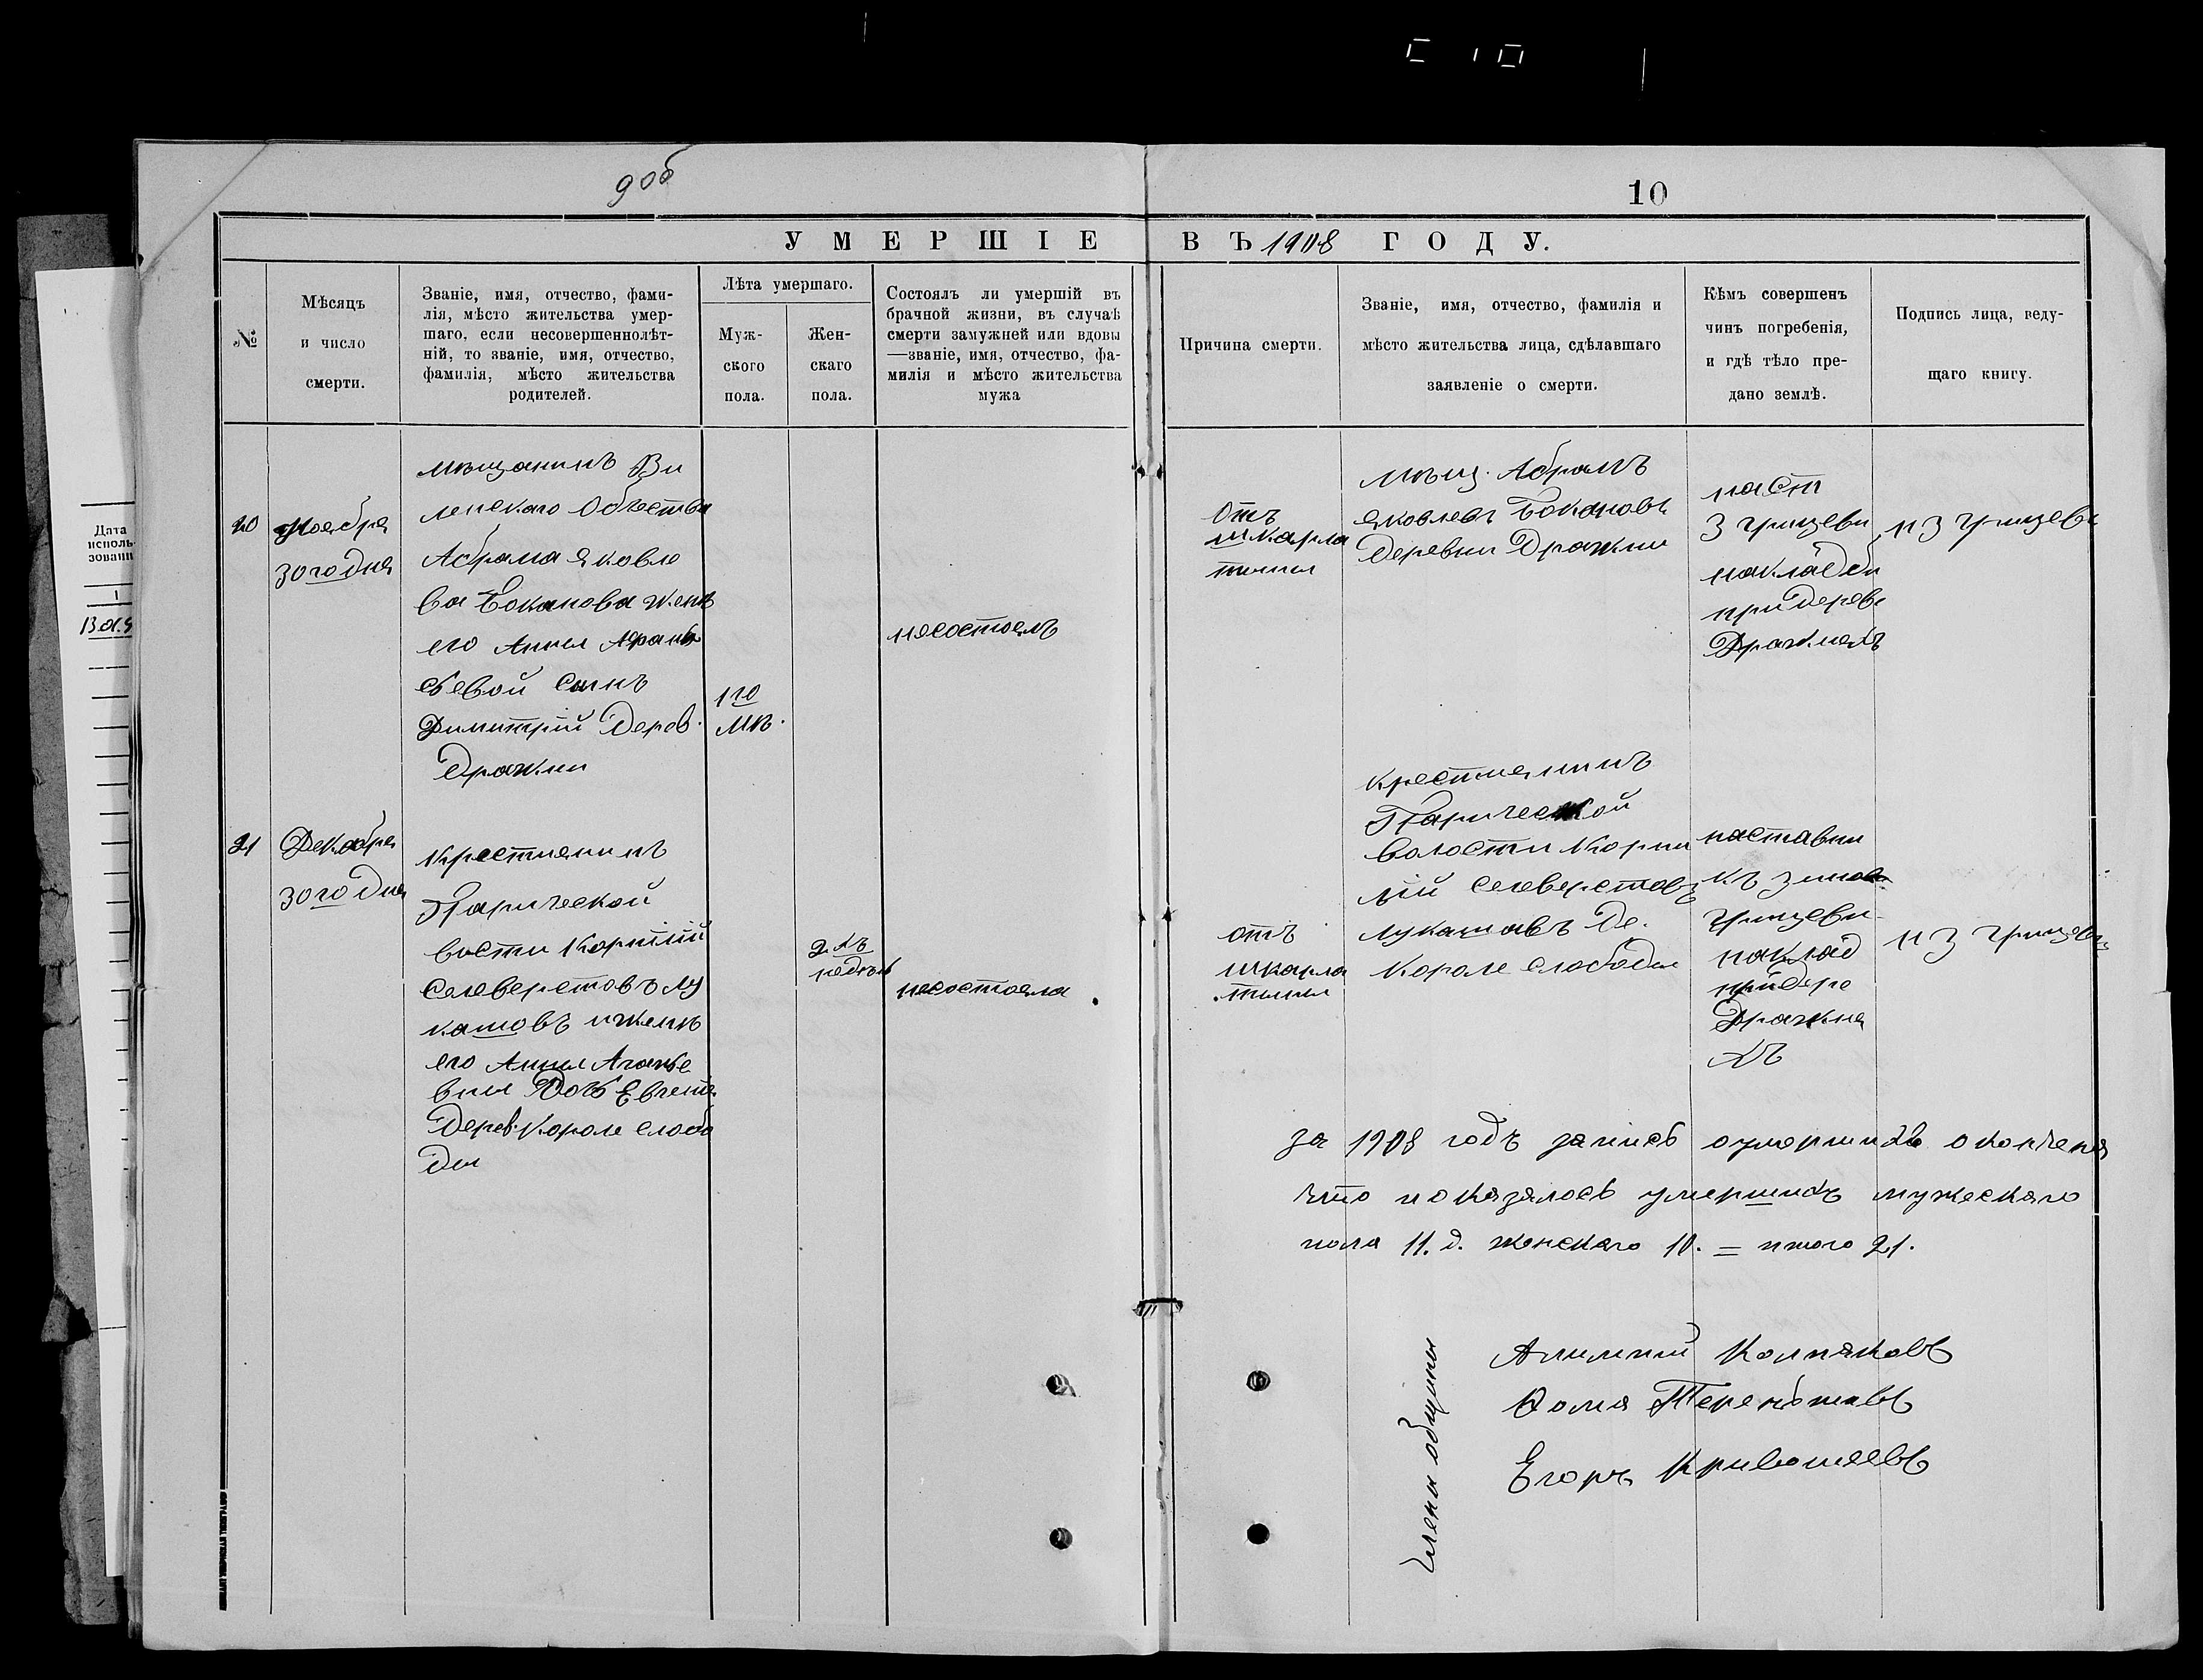 9об
10
УМЕРШІЕ ВЪ 1908 ГОДУ.
№
Мѣсяцъ
и число
смерти.
Званіе, имя, отчество, фами-
лія, мѣсто жительства умер-
шаго, если несовершеннолѣт-
ній, то званіе, имя, отчество,
фамилія, мѣсто жительства
родителей.
Лѣта умершаго.
Муж-
ского
пола.
Жен-
скаго
пола.
Состоялъ ли умершій въ
брачной жизни, въ случаѣ
смерти замужней или вдовы
—званіе, имя, отчество, фа-
милія и мѣсто жительства
мужа
Причина смерти.
Званіе, имя, отчество, фамилія и
мѣсто жительства лица, сдѣлавшаго
заявленіе о смерти.
Кѣмъ совершенъ
чинъ погребенія,
и гдѣ тѣло пре-
дано землѣ.
Подпись лица, веду-
щаго книгу.
20
Ноября
30го дня
мѣщанинъ Ви
ленскаго Обѣства
Абрама Яковле
ва Боканова жены
его Анны
евой сынъ
Димитрій Дерев.
Дражни
1го
мѣ.
несостоялъ
отъ
шкарла
тины
мѣщ. Абрамъ
Яковлевъ Бокановъ
Деревни Дражни
наст
З Грицеви
накладби
при дерев
Дражняхъ
н З Грицевъ
21
Декабря
30го дня
крестиянинъ
Парической
Селеверстовъ Лу
кашовъ и жены
его Анны
вны Дочь Евгенія
Дерев. Короле слобо
ды
2хъ
недѣль
несостояла
отъ
шкарла
тины
крестиянинъ
Парической
волости Корни
лій Селеверстовъ
Лукашовъ Де.
Короле слободы
наставни
къ Зинов
Грицеви
наклад
при дере
Дражня
хъ
н З Грицевъ
за 1908 годъ запись о умершихъ окончена
что показялось умершихъ мужескаго
пола 11. д. женскаго 10. = итого 21.
Члены общины
Алимпий Колпаковъ
Фома Терентьевъ
Егоръ Кривошеевъ
Дата
исполь-
зования
1